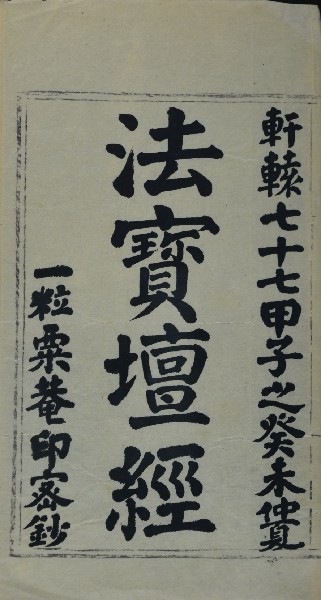 軒轅七十七甲子之癸未仲夏
法寶壇經
一粒粟菴印宻鈔